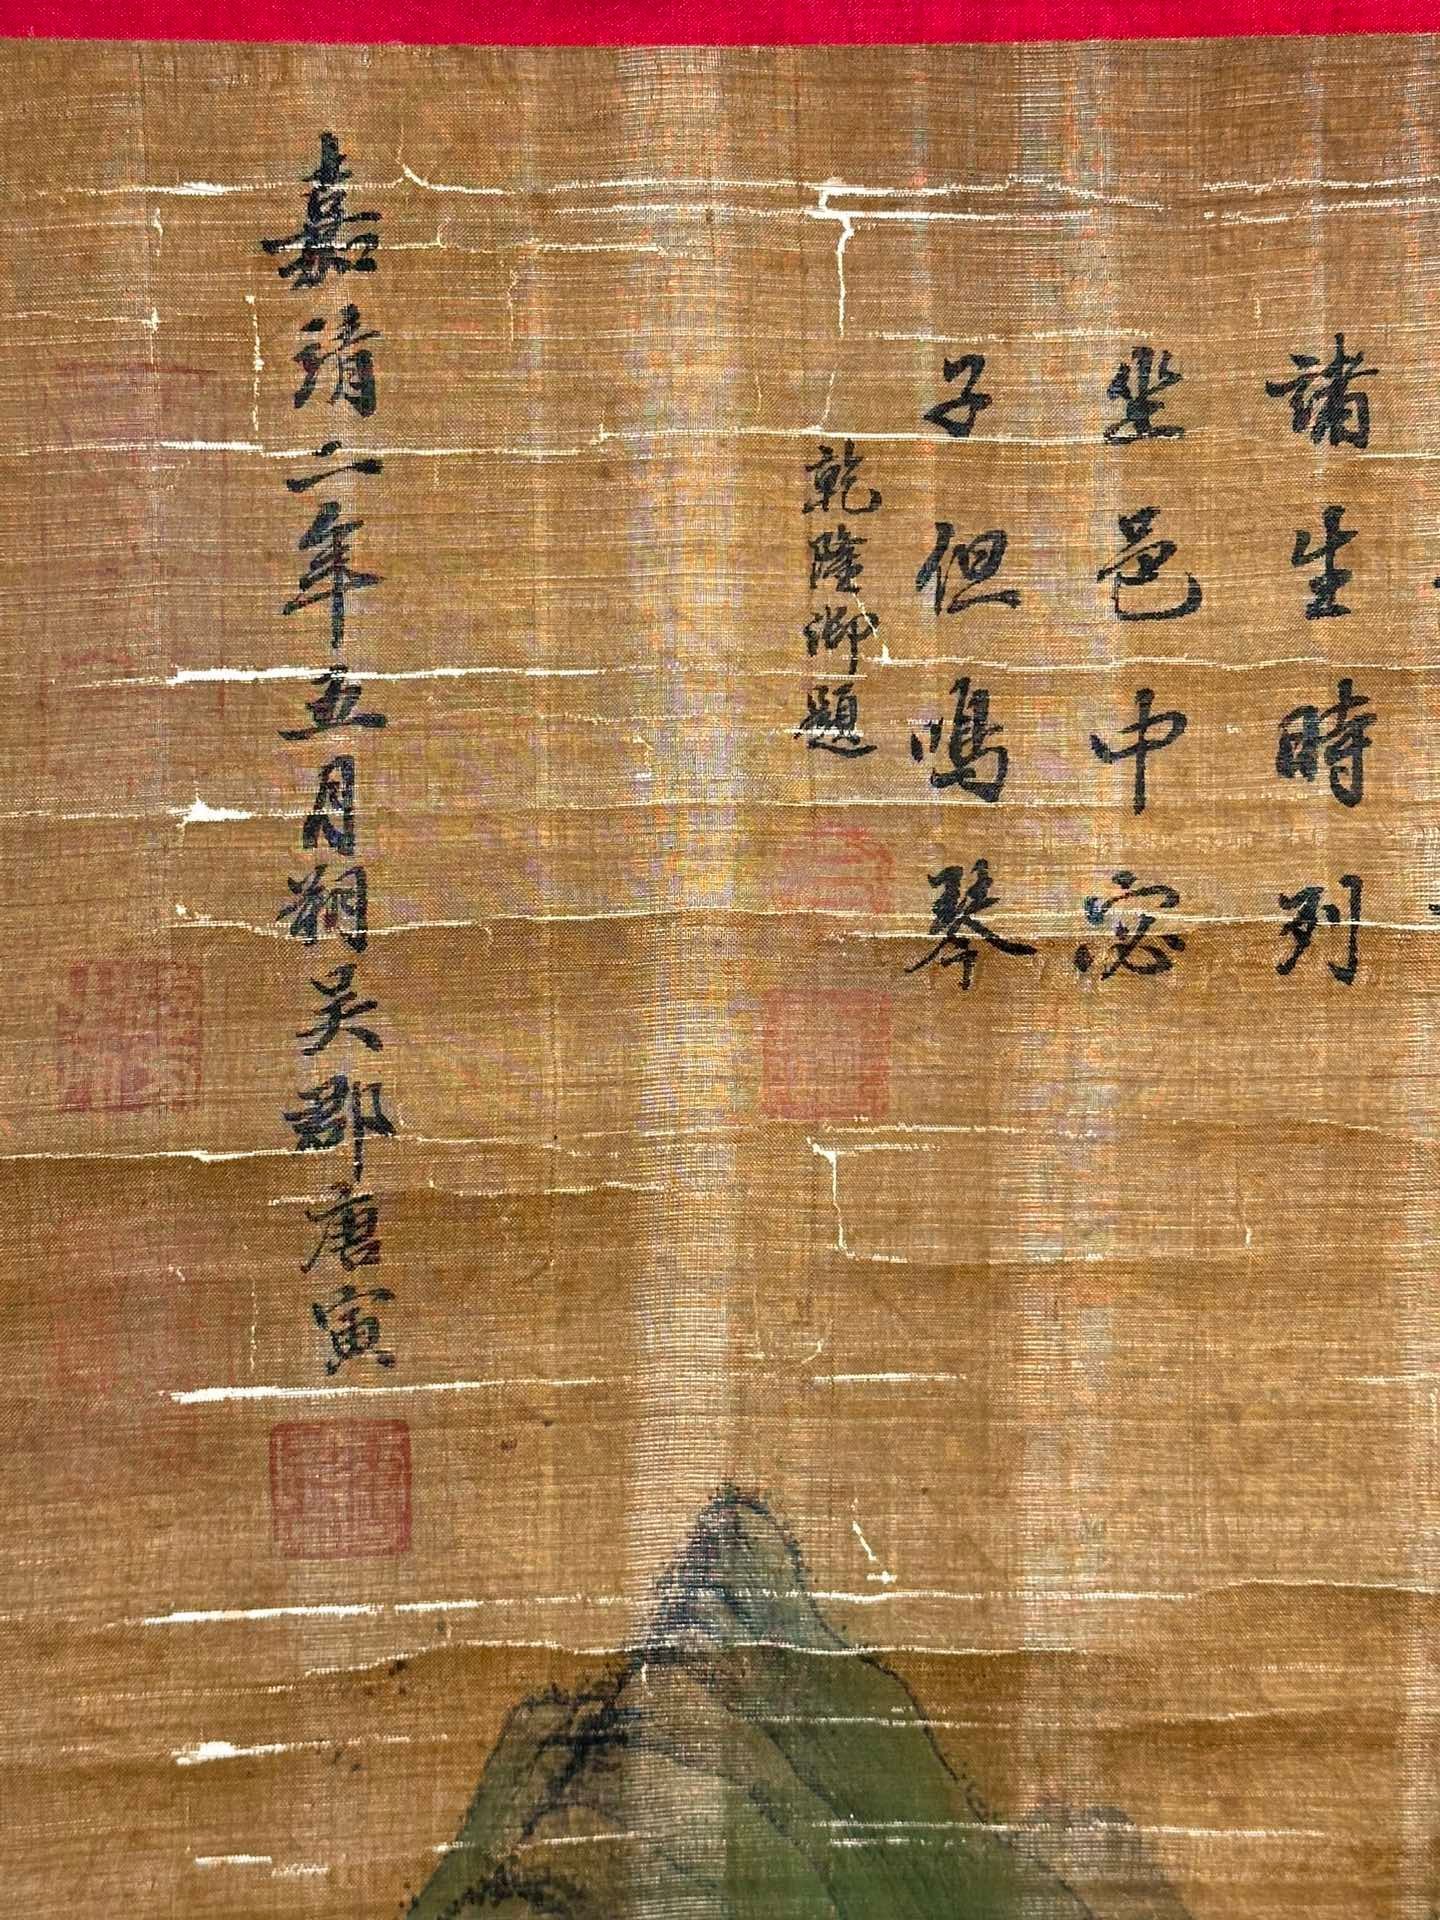 諸生時列
坐邑中宓
子但鳴琴
乾隆御題
嘉靖二年五月朔吴郡唐寅